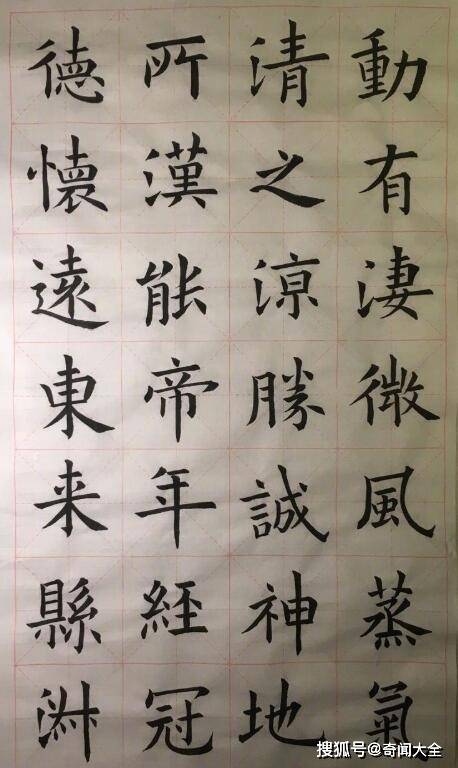 動有淒微風蒸氣
清之涼勝誠神地
所漢能帝年經冠
德懷遠東来縣
搜狐号@奇闻大全